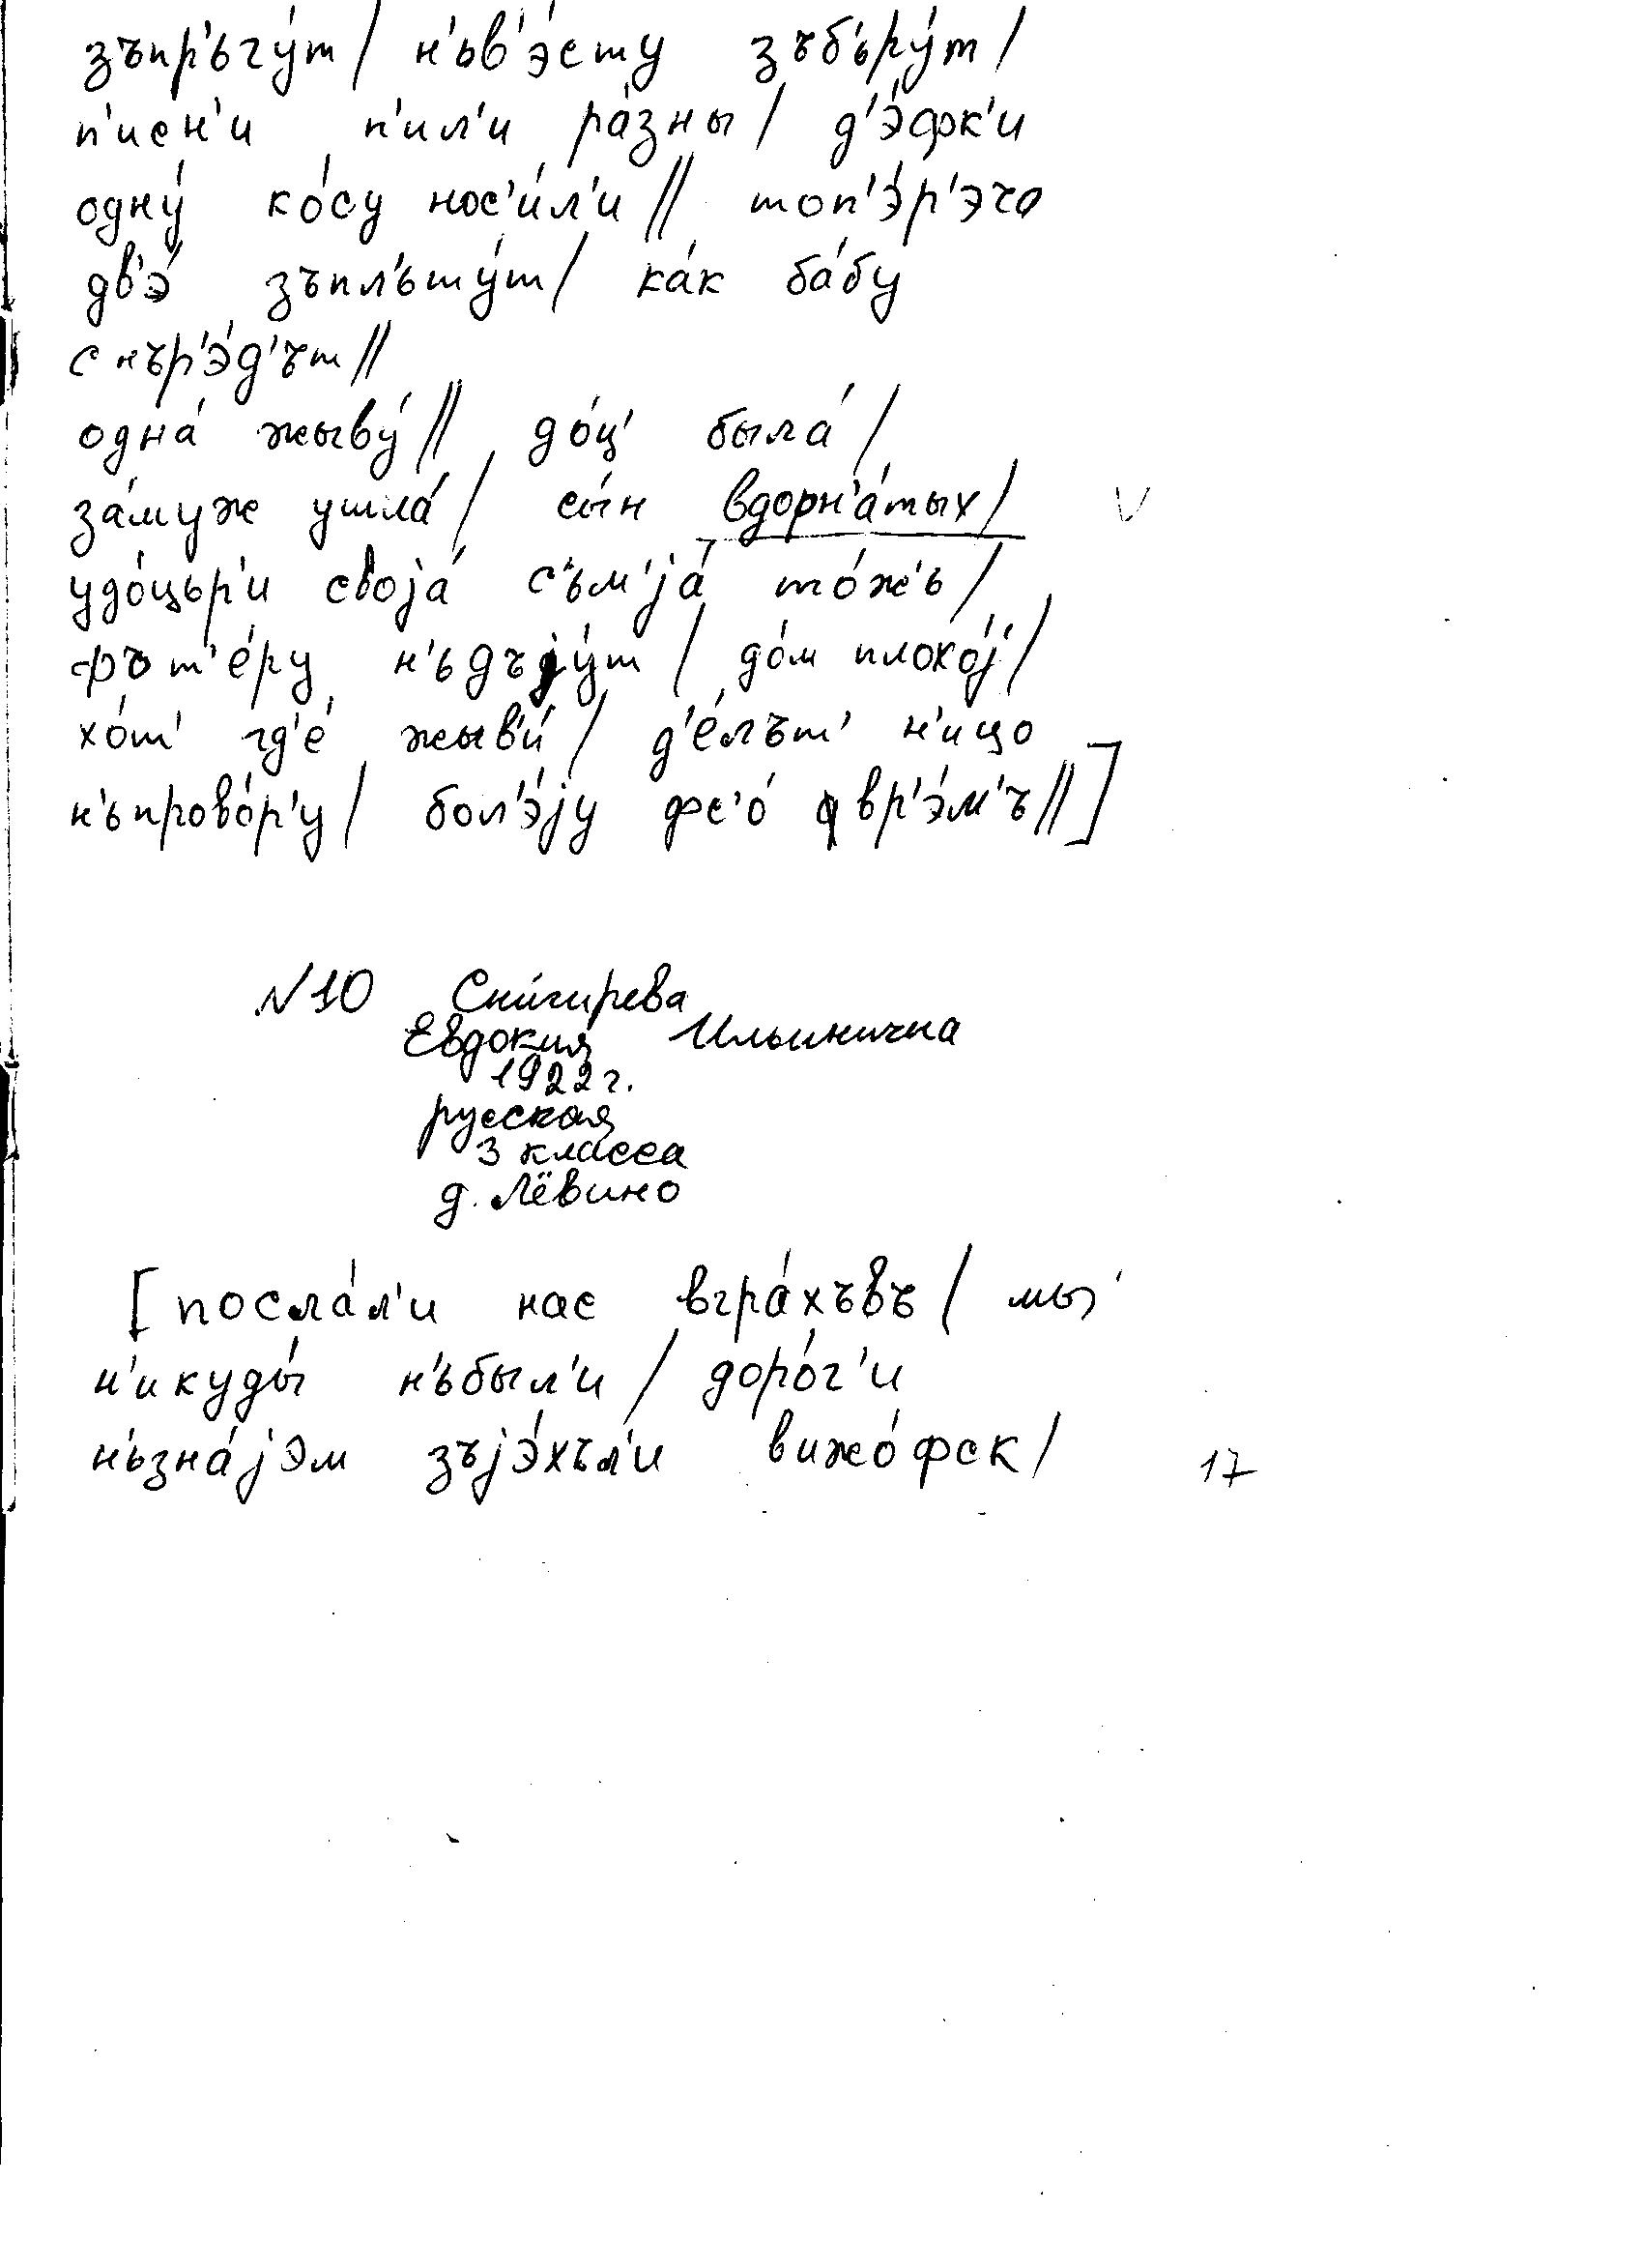 зъпр'ьгу́т / н'ьв'э́сту зъб'ьру́т /
п'исн'и п'ил'и ра́зны / д'э́фк'и
одну́ ко́су нос'и́л'и // топ'э́р'эча
дв'э́ зъпл'ьту́т / ка́к ба́бу
снър'э́д'ът //
одна́ жыву́ // до́ц' была́ /
за́муж ушла́ / сы́н вдорн'а́тых / V
удо́цьр'и своjа́ с'ьм'jа́ то́ж'ь /
фът'е́ру н'ьдъjу́т / до́м плохо́j /
хо́т' гд'е́ жыв'и́ / д'е́лът' н'ицо
н'ьпрово́р'у / бол'э́jу фс'о́ вр'э́м'ъ // ]
№10 Сни́гирева
Евдокия Ильинична
1922 г.
русская
3 класса
д. Лёвино
[ посла́л'и нас вгра́хъвъ / мы́
н'икуды́ н'ьбыл'и / доро́г'и
н'ьзна́jэм зъjэ́хъл'и вижо́фск / 17